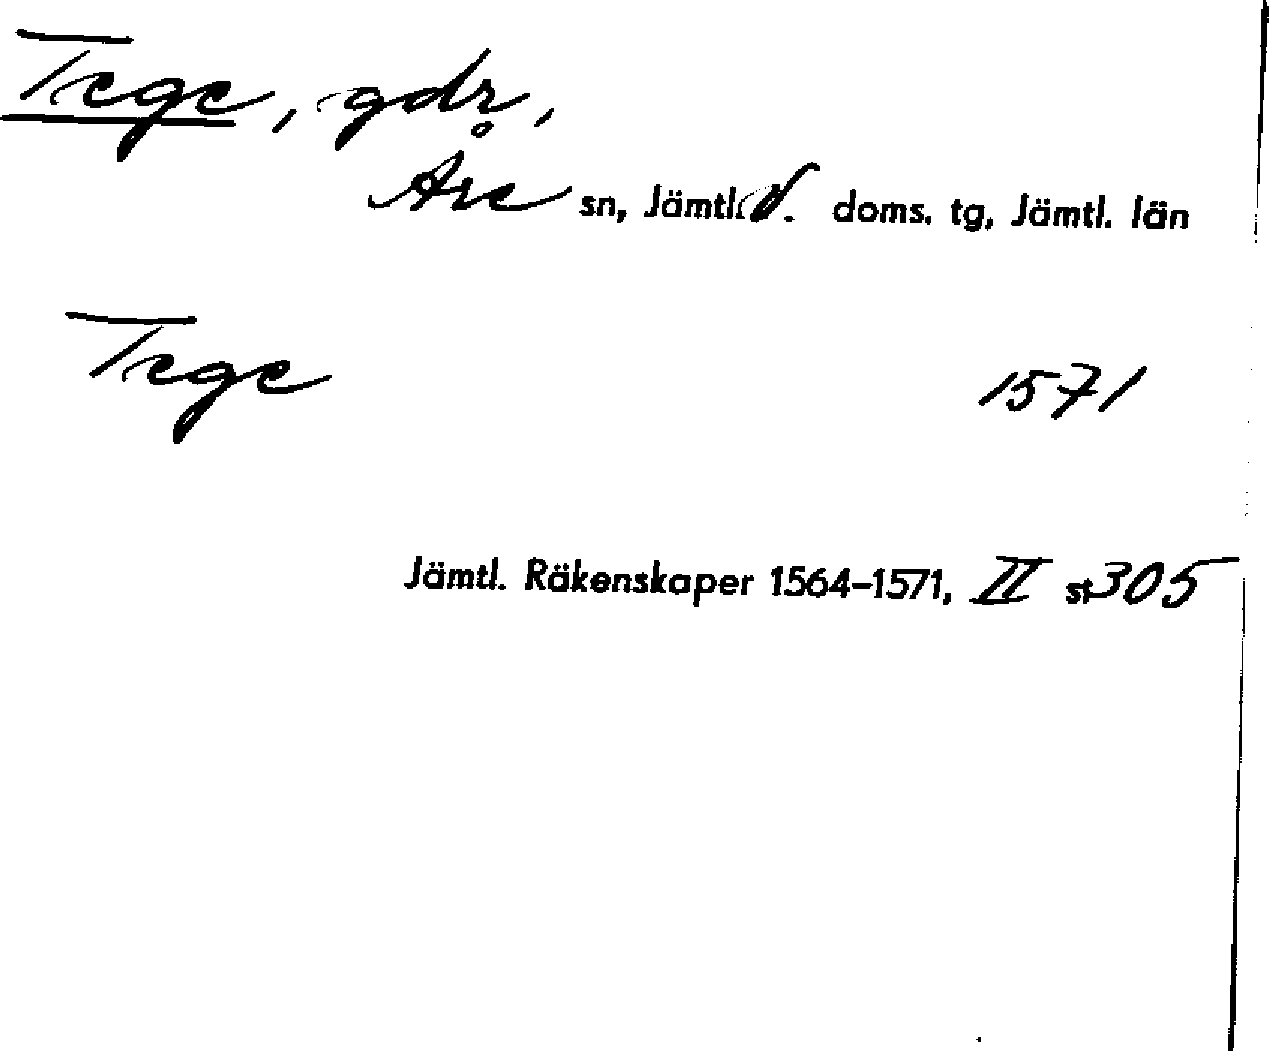 Tege, gdr,
Åre sn, Jämtl. V. doms. tg, Jämtl. län
Tege 1571
Jämtl. Räkenskaper 1564-1571, II s 305